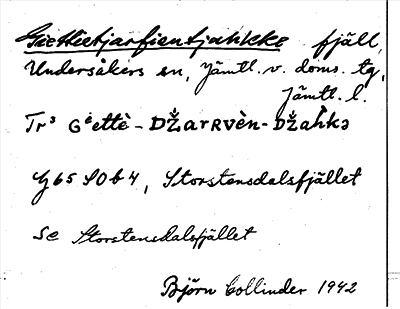 Giettietjarfientjahkke fjäll,
Undersåkers sn, Jämtl. v. doms. tg,
Jämtl. l.
Trs Gèettè - DŽarrvèn - DŽahkə
G 65 SO b 4, Storstensdalsfjället
Se Storstensdalsfjället
Björn Collinder 1942